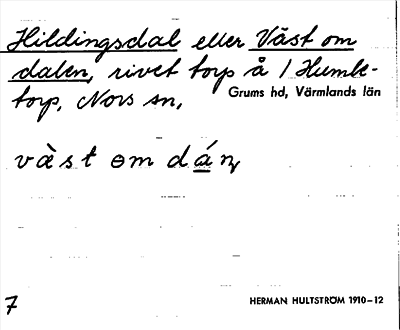 Hildingsdal eller Väst om
dalen, rivet torp å 1 Humle-
torp, Nors sn,
Grums hd, Värmlands län
vàst om dán,
7
HERMAN HULTSTRÖM 1910–12